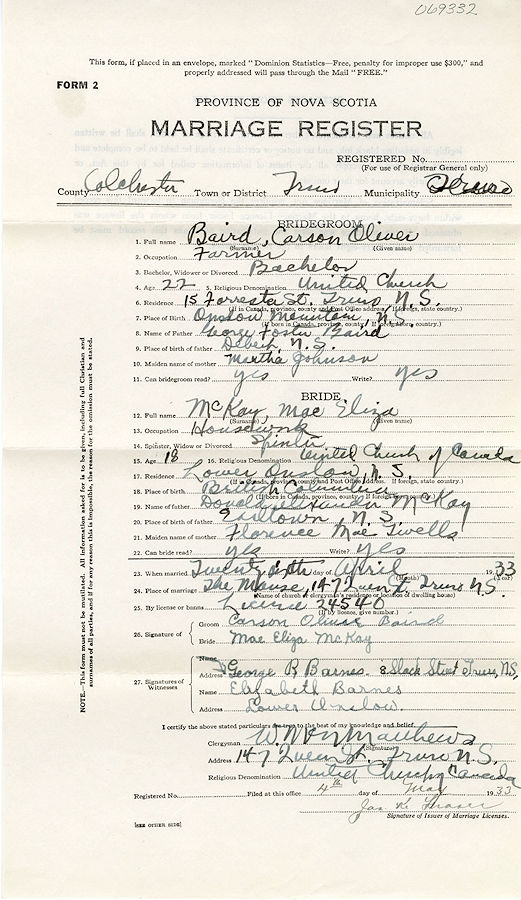 069332
This form, if placed in an envelope, marked "Dominion Statistics—Free, penalty for improper use $300," and
properly addressed will pass through the Mail "FREE."
FORM 2
PROVINCE OF NOVA SCOTIA
MARRIAGE REGISTER
REGISTERED No.
(For use of Registrar General only)
County Colchester Town or District Truro Municipality Truro
BRIDEGROOM
1. Full name Baird, Carson Oliver
(Surname) (Given name)
2. Occupation Farmer
3. Bachelor, Widower or Divorced Bachelor
4. Age 22 5. Religious Denomination United Church
6. Residence 15 Forresta St. Truro N.S.
(If in Canada, province, county and Post Office Address. If foreign, state country.)
7. Place of Birth Onslow Mountain, N.S.
(If born in Canada, province, county. If foreign born, country.)
8. Name of Father George Foster Baird
9. Place of birth of father Debert, N.S.
10. Maiden name of mother Martha Johnson
11. Can bridegroom read? yes Write? yes
BRIDE
12. Full name McKay, Mae Eliza
(Surname) (Given name)
13. Occupation Housework
14. Spinster, Widow or Divorced Spinster
15. Age 18 16. Religious Denomination United Church of Canada
17. Residence Lower Onslow, N.S.
(If in Canada, province, county and Post Office Address. If foreign, state country.)
18. Place of birth British Columbia
(If born in Canada, province, county. If foreign born, country.)
19. Name of father McKay
20. Place of birth of father Earltown, N.S.
21. Maiden name of mother Florence Mae
22. Can bride read? yes Write? yes
23. When married, day of April 1933
(Month) (Year)
24. Place of marriage The Manse, 147 Queen St. Truro N.S.
(Name of church or clergyman's residence or location of dwelling house)
25. By license or banns License 24540
(If by licence, give number.)
26. Signature of
Groom Carson Oliver Baird
Bride Mae Eliza McKay
27. Signatures of Witnesses
Name
Address George R Barnes. 8 Slack Street Truro, N.S.
Name Elizabeth Barnes
Address Lower Onslow.
I certify the above stated particulars are true to the best of my knowledge and belief.
Clergyman Matthews
(Signature)
Address 147 Queen St. Truro N.S.
Religious Denomination United Church of Canada
Registered No. Filed at this office 4th day of May 1933
Jas. K. Fraser
Signature of Issuer of Marriage Licenses.
[SEE OTHER SIDE]
NOTE.—This form must not be mutilated. All information asked for is to be given, including full Christian and
surnames of all parties, and if for any reason this is impossible, the reason for the omission must be stated.